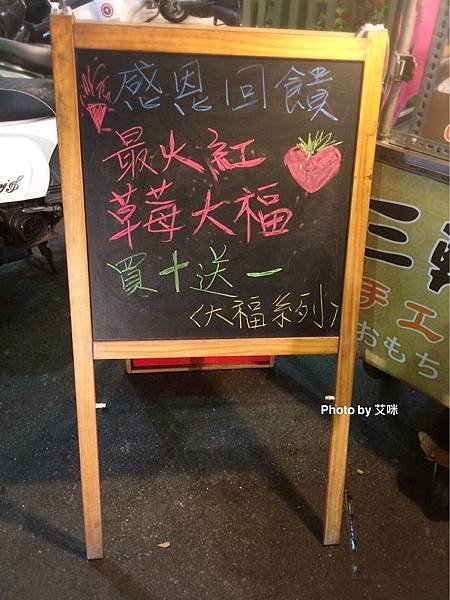 感恩回饋
最火紅
草莓大福
買十送一
<大福系列>
三
手工
おもち
Photo by 艾咪